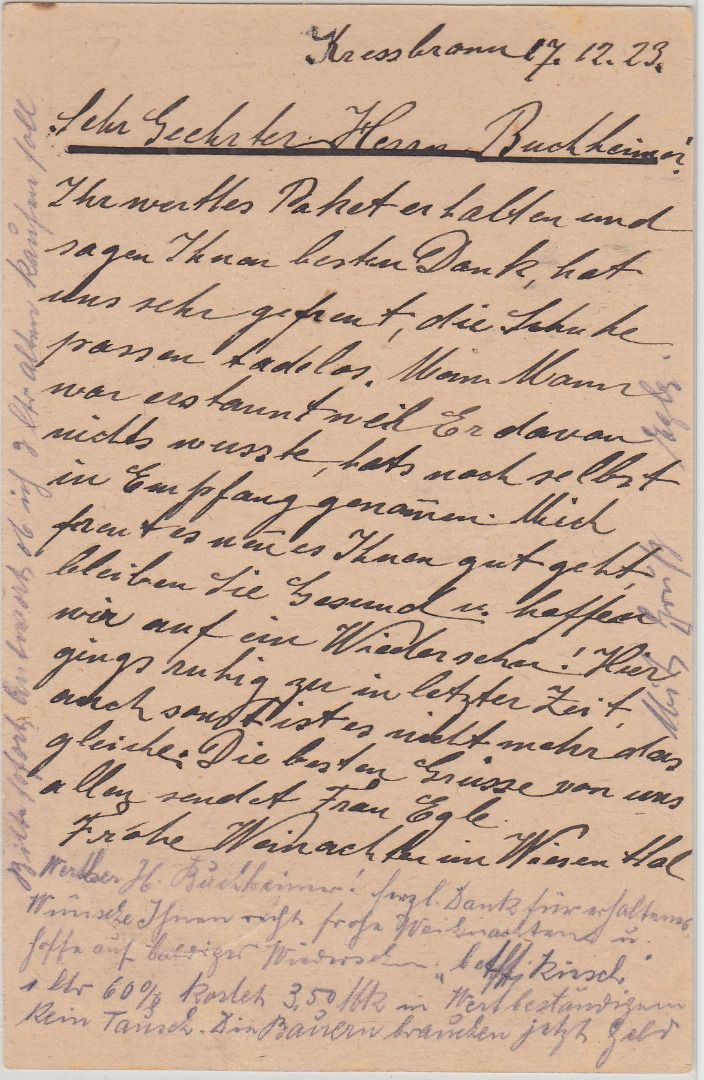 Kressbronn 17. 12. 23.
Sehr Geehrter Herrn Buchheimer!
Ihr werttes Paket erhalten und
sagen Ihnen besten Dank, hat
uns sehr gefreut, die Schuhe
passen tadelos. Mein Mann
war erstaunt weil Er davon
nichts wusste, hats noch selbst
in Empfang genom̄en. Mich
freut es wen̄ es Ihnen gut geht,
bleiben Sie Gesund u. hoffen
wir auf ein Wiedersehn! Hier
gings ruhig zu in letzter Zeit,
auch sonst ist es nicht mehr das
gleiche. Die besten Grüsse von uns
allen sendet Frau Egle.
Frohe Weinachten im Wiesenthal
Werther H. Buchheimer! herzl. Dank für erhaltenes
Wünsche Ihnen recht frohe Weihnachten u.
hoffe auf baldiges Wiedersehn. betff. Kirsch.
1 ltr 60% kostet 3.50 Mk in Wertbeständigem
Kein Tausch. Die Bauern brauchen jetzt Geld
Bitte sofort Antwort ob ich 2 ltr alten kaufen soll
Mit Gruß Egle.